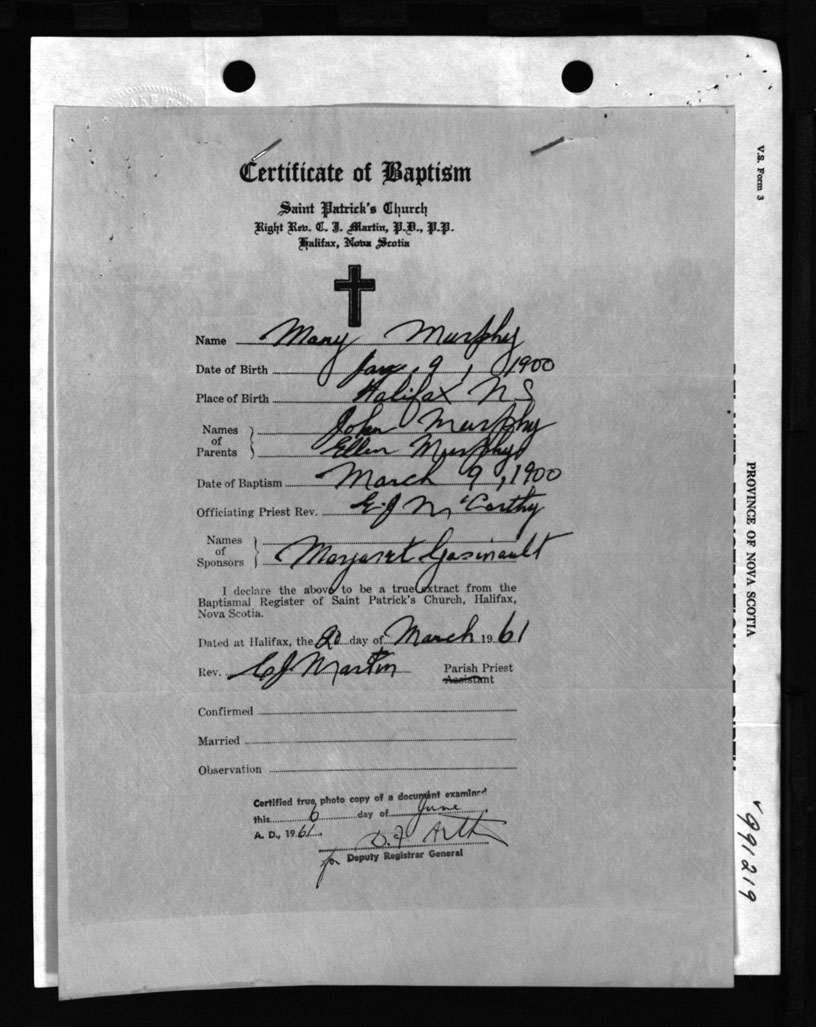 Certificate of Baptism
Saint Patrick's Church
Right Rev. C. J. Martin, P.D., P.P.
Halifax, Nova Scotia
Name Mary Murphy
Date of Birth Jany. 9, 1900
Place of Birth Halifax NS
Names of Parents John Murphy
Ellen Murphy
Date of Baptism March 9, 1900
Officiating Priest Rev. E.J McCarthy
Names of Sponsors Margaret
I declare the above to be a true extract from the
Baptismal Register of Saint Patrick's Church, Halifax,
Nova Scotia.
Dated at Halifax, the 20 day of March 1961
Rev. CJ Martin Parish Priest
Assistant
Confirmed
Married
Observation
Certified true photo copy of a document examined
this 6 day of June
A. D., 1961.
D.F.
for Deputy Registrar General
V.S. Form 3
PROVINCE OF NOVA SCOTIA
991219